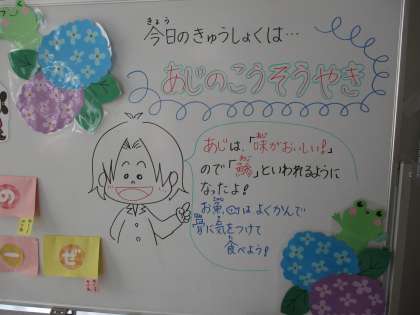 きょう
今日のきゅうしょくは…
あじのこうそうやき
あじは、「味がおいしい!」
ので「鯵」といわれるように
なったよ!
お魚は よくかんで
骨に気をつけて
食べよう!